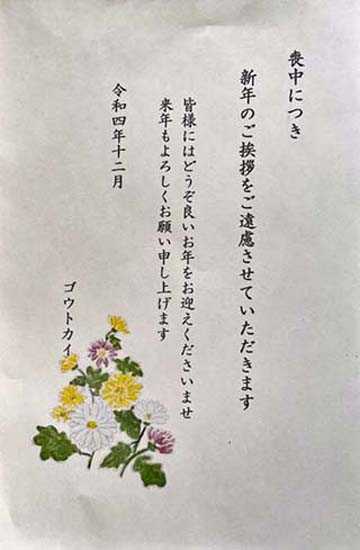 喪中につき
新年のご挨拶をご遠慮させていただきます
皆様にはどうぞ良いお年をお迎えくださいませ
来年もよろしくお願い申し上げます
令和四年十二月
ゴウトカイ